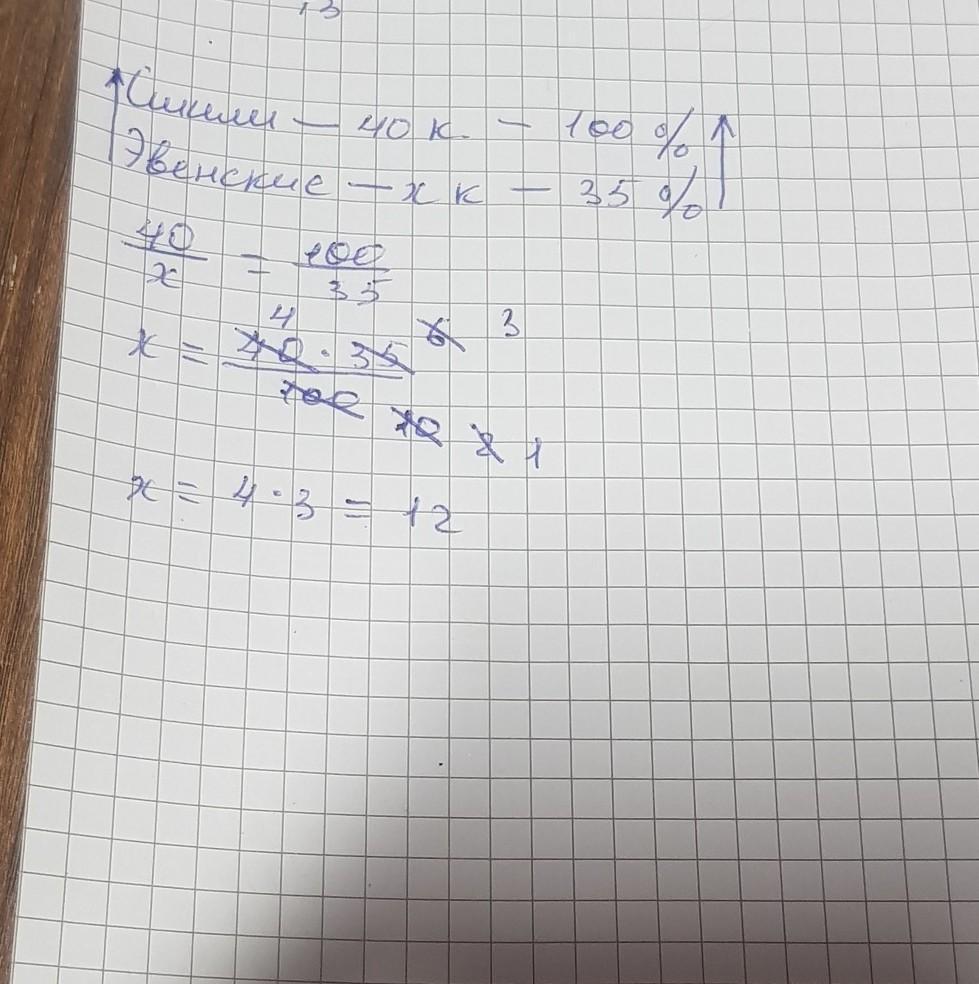 13
Сшили — 40 к. — 100 %
Эвенские — х к — 35 %
40/x = 100/35
4 6 3
x = 40 · 35 / 100 10 2 1
x = 4 · 3 = 12